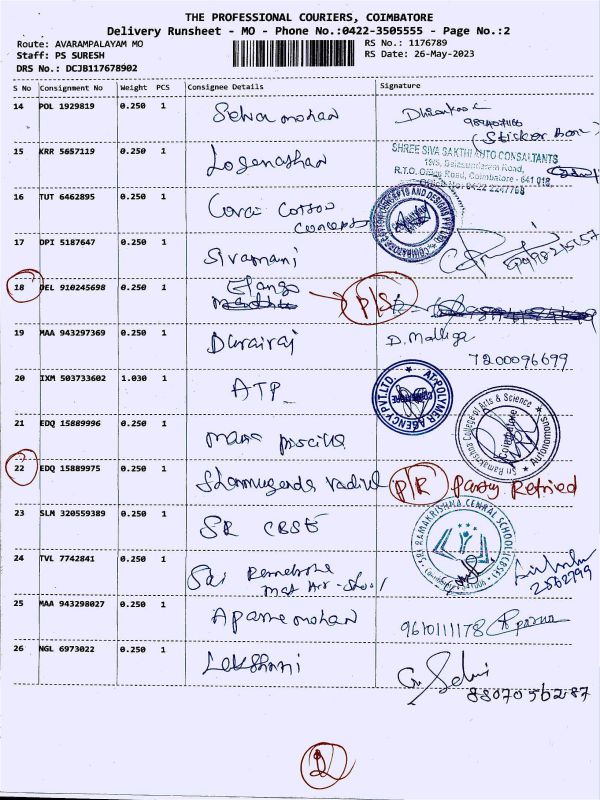 THE PROFESSIONAL COURIERS, COIMBATORE
Delivery Runsheet - MO - Phone No.:0422-3505555 - Page No.:2
Route: AVARAMPALAYAM MO
RS No.: 1176789
Staff: PS SURESH
RS Date: 26-May-2023
DRS No.: DCJB117678902
S No Consignment No Weight PCS Consignee Details Signature
14 POL 1929819 0.250 1 Selva mohan
15 KRR 5657119 0.250 1 Logenathan
SHREE SIVA SAKTHI AUTO CONSALTANTS
R.T.O. Office Road, Coimbatore - 641 018.
16 TUT 6462895 0.250 1 Covai Cotton
Concepts
17 DPI 5187647 0.250 1 Sivamani
18 DEL 910245698 0.250 1 Elango P/S
19 MAA 943297369 0.250 1 Durairaj D. Malliga
7200096699
20 IXM 503733602 1.030 1 ATP
AT-POLYMER AGENCY PVT.LTD.
21 EDQ 15889996 0.250 1
Sri Ramakrishna College of Arts & Science
Autonomous
Coimbatore
22 EDQ 15889975 0.250 1 P/R Party Refused
23 SLM 320559389 0.250 1 SR CBSE
SRI RAMAKRISHNA CENRAL SCHOOL (CBSE)
24 TVL 7742841 0.250 1 Sri
2562799
25 MAA 943298027 0.250 1 9610111178
26 NGL 6973022 0.250 1 Selvi
8807056287
2